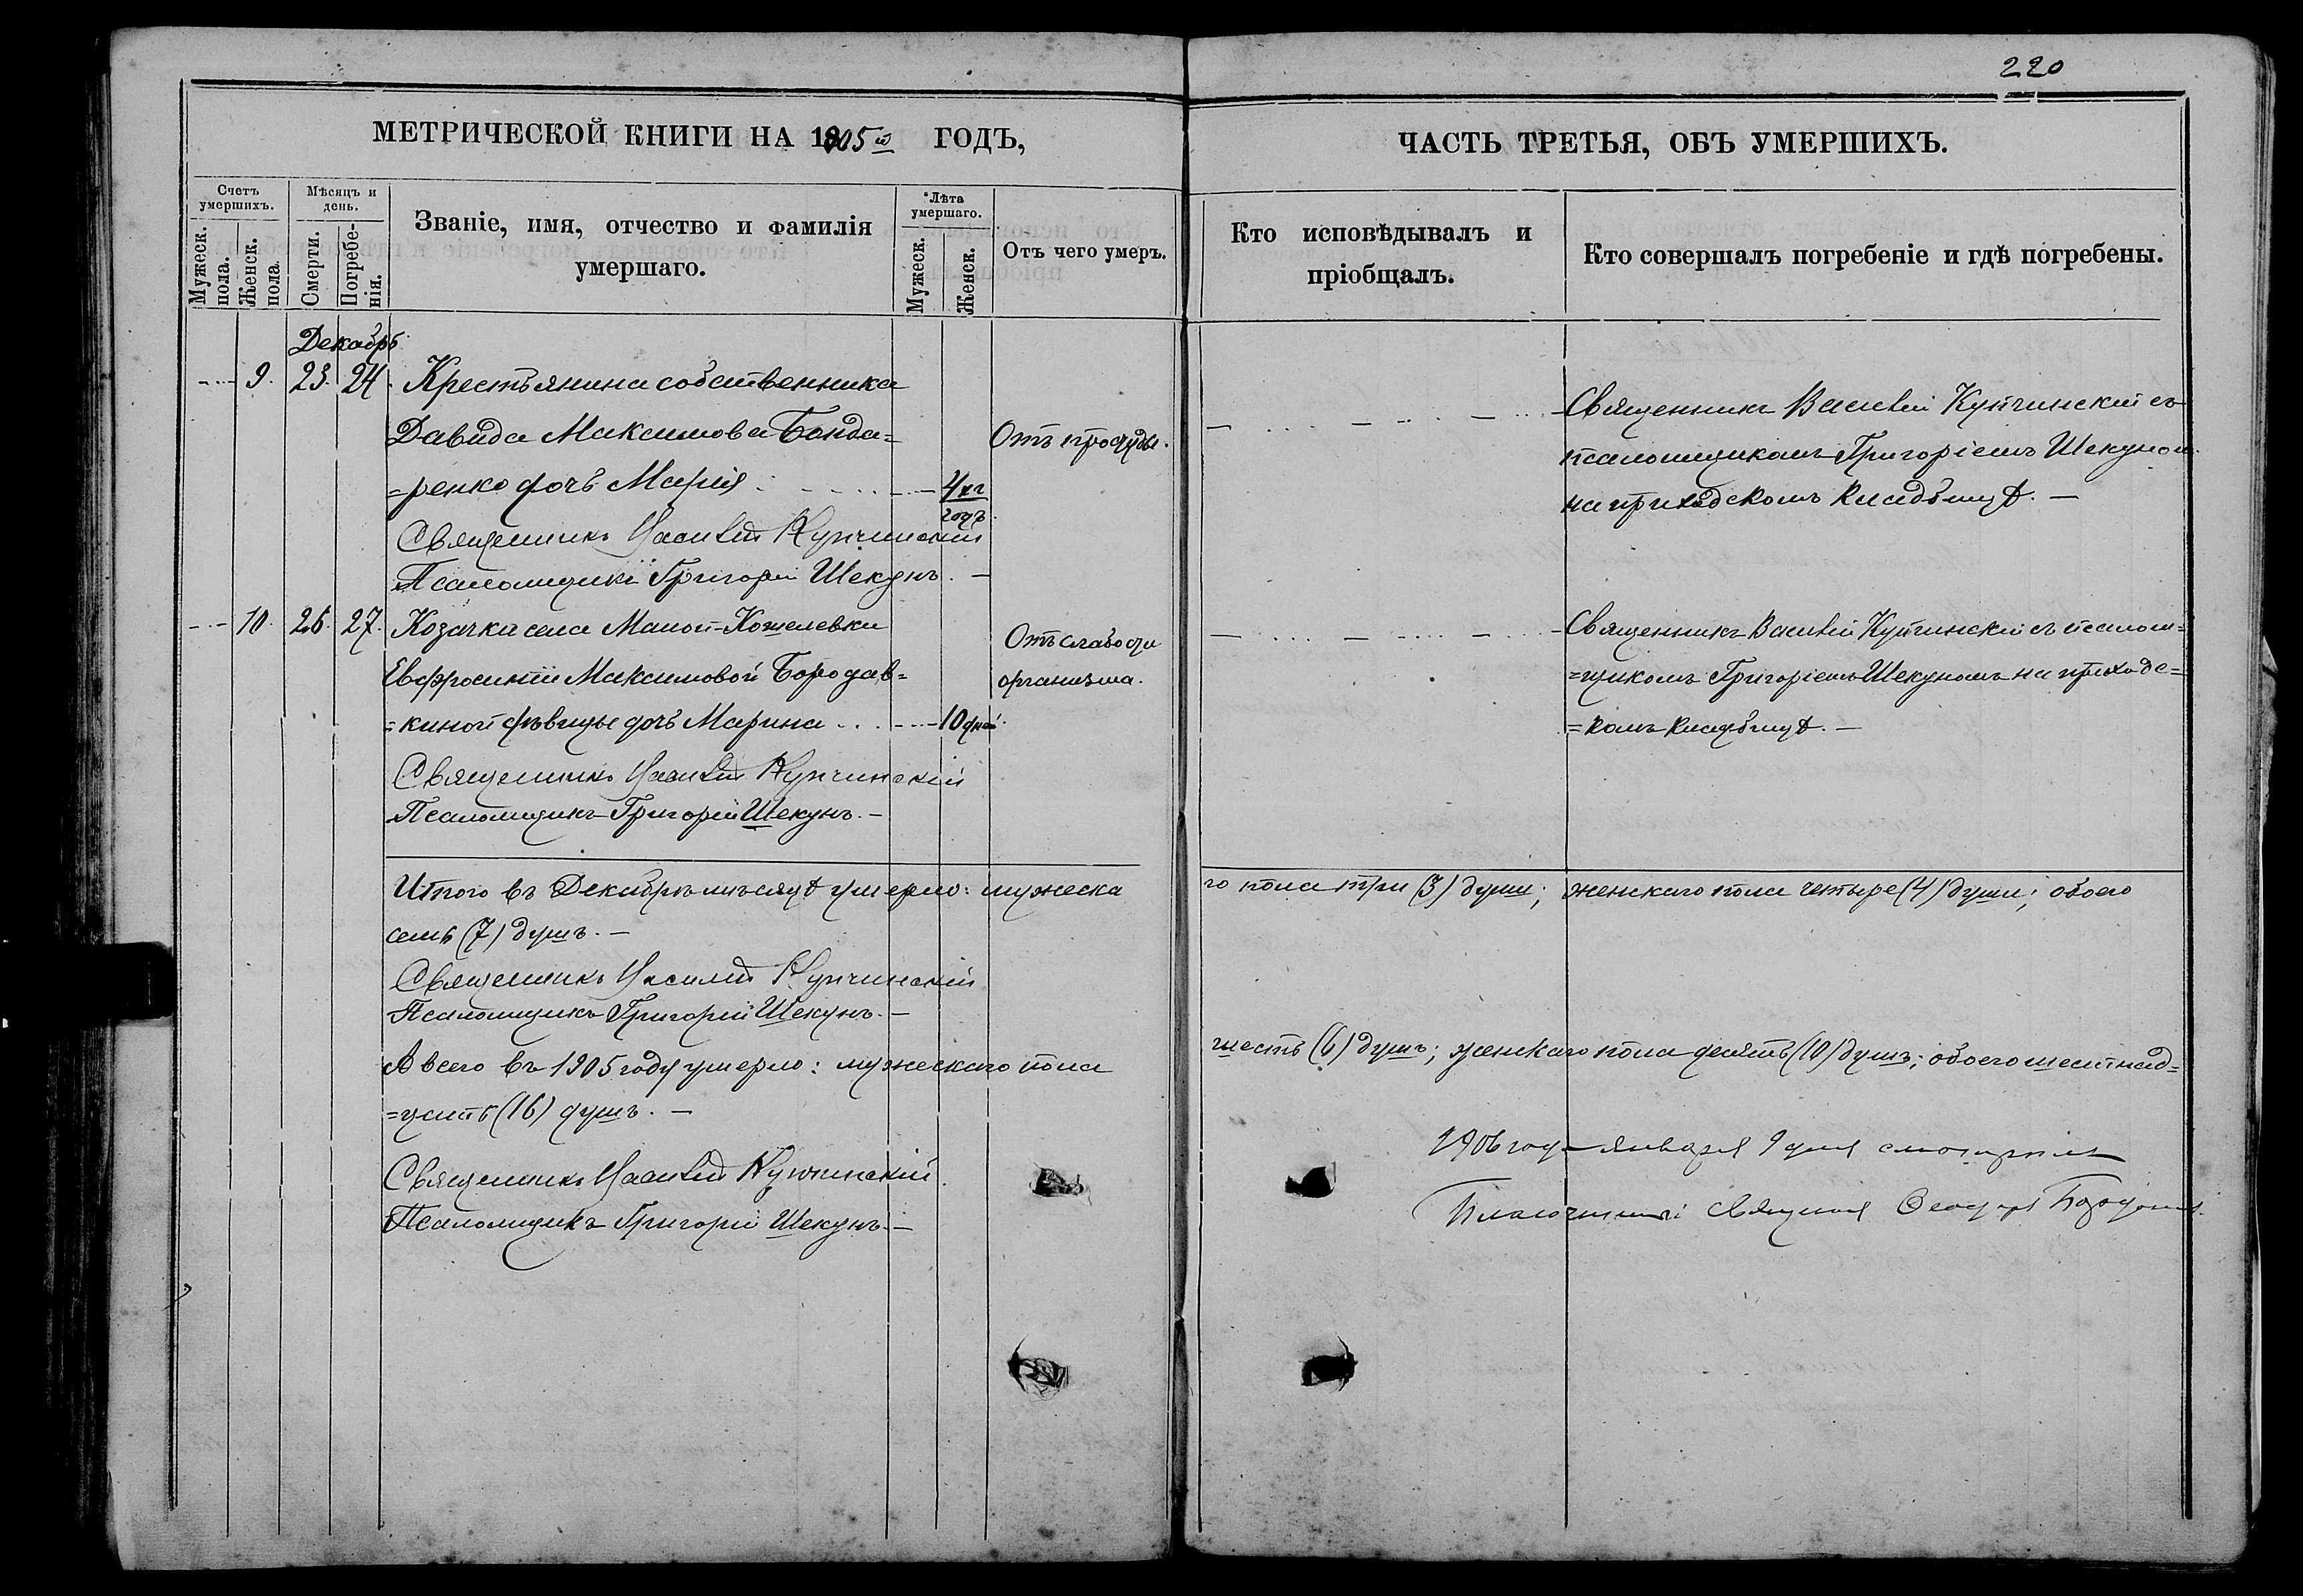 220
МЕТРИЧЕСКОЙ КНИГИ НА 1905й ГОДЪ,
ЧАСТЬ ТРЕТЬЯ, ОБЪ УМЕРШИХЪ.
Счетъ умершихъ.
Мужеск. пола.
Женск. пола.
Мѣсяцъ и день.
Смерти.
Погребенія.
Званіе, имя, отчество и фамилія
умершаго.
Лѣта умершаго.
Мужеск.
Женск.
Отъ чего умеръ.
Кто исповѣдывалъ и
пріобщалъ.
Кто совершалъ погребеніе и гдѣ погребены.
Декабрь
9. 23. 24. Крестьянина собственника
Давида Максимова Бонда=
=ренко дочь Марія
годъ
Отъ простуды.
Священникъ Василій Купчинскій съ
псаломщикомъ Григоріемъ Шекуном
на приходскомъ кладбищѣ. —
Священникъ Василій Купчинскій
Псаломщикъ Григорій Шекунъ. —
10. 26. 27. Козачка села Малой-Кошелевки
Евфросиніи Максимовой Бородав=
=киной дѣвицы дочь Марина 10 дней.
Отъ слабости
организма.
Священникъ Василій Купчинскій съ псалом=
=щикомъ Григоріемъ Шекуномъ на приходс=
=комъ кладбищѣ. —
Священникъ Василій Купчинскій
Псаломщикъ Григорій Шекунъ. —
Итого въ Декабрѣ мѣсяцѣ умерло: мужеска
го пола три (3) души; женскаго пола четыре (4) души; обоего
семь (7) душъ. —
Священникъ Василій Купчинскій
Псаломщикъ Григорій Шекунъ. —
А всего въ 1905 году умерло: мужескаго пола
шесть (6) душъ; женскаго пола десять (10) душъ; обоего шестнад=
=цать (16) душъ. —
Священникъ Василій Купчинскій.
Псаломщикъ Григорій Шекунъ. —
1906 года января 9 дня смотрѣлъ
Благочинный Священникъ Феодоръ